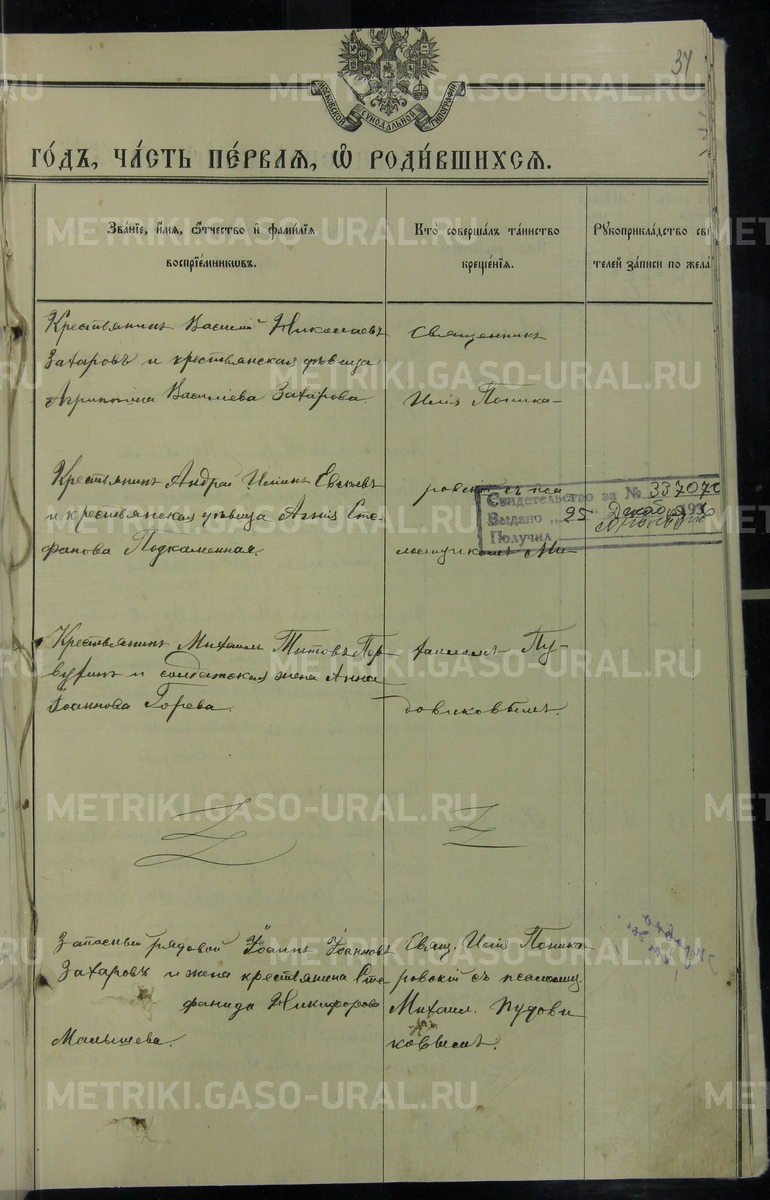 37
МОСКОВСКОЙ СУНОДАЛЬНОЙ ТИПОГРАФІИ
ГО́ДЪ, ЧА́СТЬ ПЕ́РВАЯ, Ѽ РОДИ́ВШИХСЯ.
Зва́ніе, и҆́мя, ѻ҆́тчество и҆ фами́лія
воспріе́мникѡвъ.
Кто̀ соверша́лъ та́инство
креще́нія.
Рꙋкоприкла́дство сви
телей за́писи по жела́
Крестьянинъ Василій Николаевъ
Захаровъ и крестьянская дѣвица
Агрипина Василіева Захарова.
Священникъ
Илія Поника-
Крестьянинъ Андрей
и крестьянская дѣвица Агнія Сте
фанова Подкаменная.
ровскій съ пса
ломщикомъ Ми-
Свидетельство за №
Выдано 25 Декаб
Получил
Крестьянинъ Михаилъ Титовъ Пер-
вухинъ и солдатская жена Анна
Іоаннова Горева.
хаиломъ Пу-
довиковымъ.
Запасный рядовой Іоаннъ Іоанновъ
Захаровъ и жена крестьянина Сте
фанида Никифорова
Малышева.
Свящ. Илія Поника
ровскій съ псаломщ.
Михаил. Пудови
ковымъ.
METRIKI.GASO-URAL.RU